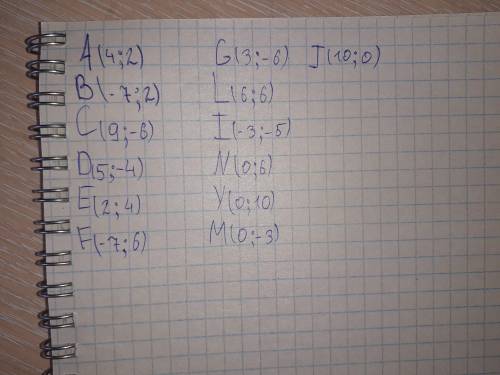 A(4;2) G(3;-6) J(10;0)
B(-7;2) L(6;6)
C(9;-6) I(-3;-5)
D(5;-4) N(0;6)
E(2;4) Y(0;10)
F(-7;6) M(0;-3)